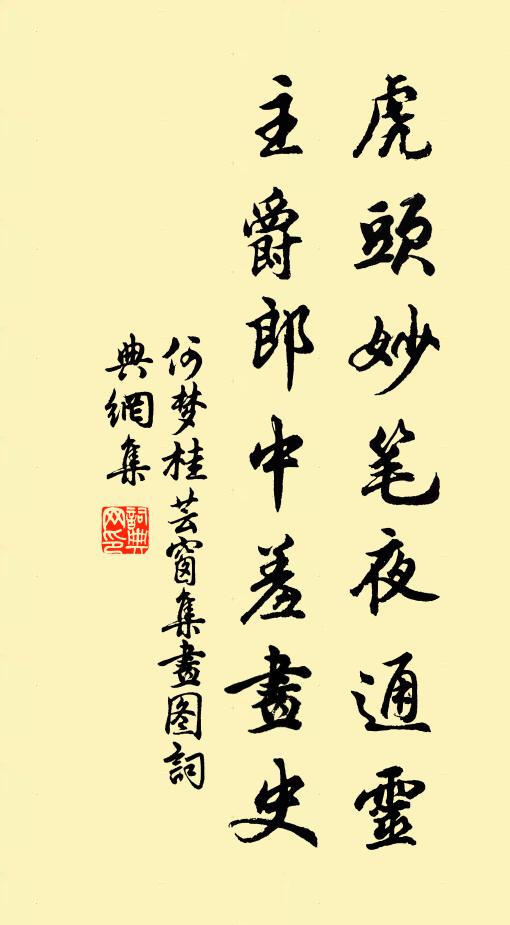 虎頭妙笔夜通靈
主爵郎中羞畫史
何梦桂芸窗集畫图詞
典網集
詞典网印